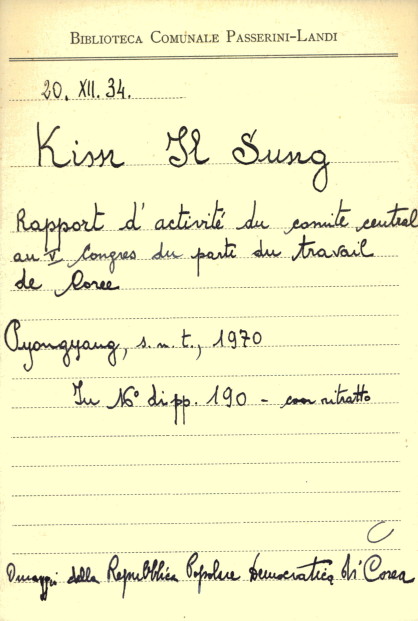 BIBLIOTECA COMUNALE PASSERINI-LANDI
20. XII. 34.
Kim Il Sung
Rapport d'activité du comité central
au V Congres du parti du travail
de Coree
Pyongyang, s. n. t., 1970
In N° di pp. 190 - con ritratto
Omaggio della Repubblica Popolare Democratica di Corea